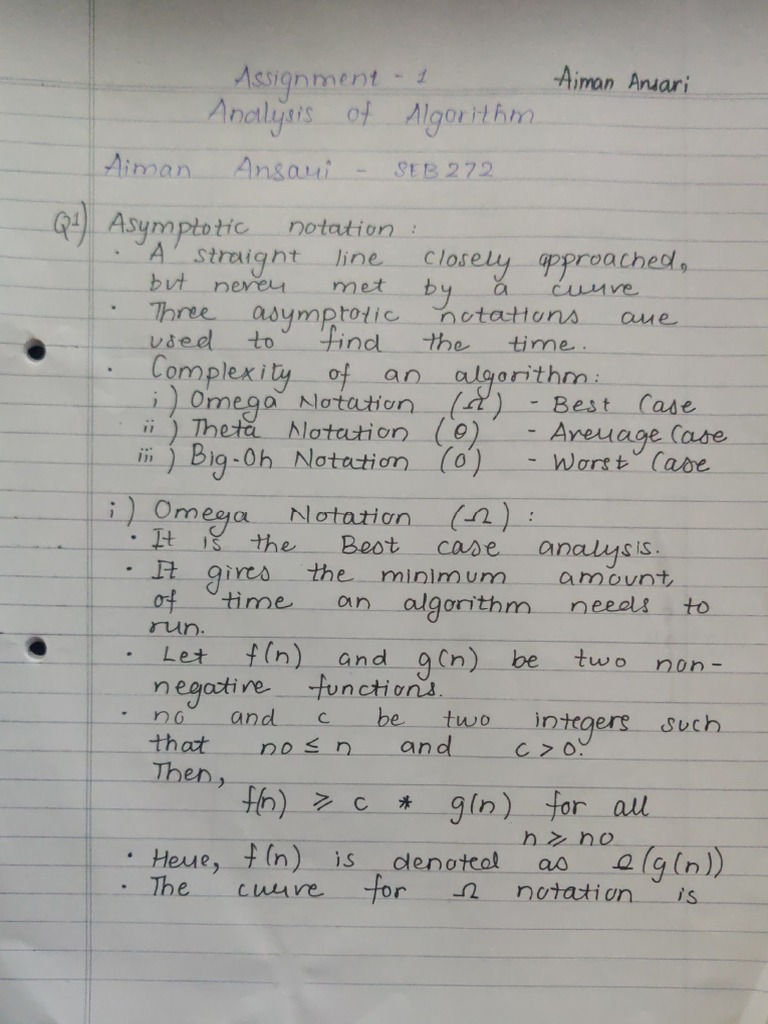 Assignment - 1
Aiman Ansari
Analysis of Algorithm
Aiman Ansari - SEB272
Q1) Asymptotic notation :
· A straight line closely approached,
but never met by a curve
· Three asymptotic notations are
used to find the time.
· Complexity of an algorithm:
i) Omega Notation (Ω) - Best Case
ii) Theta Notation (θ) - Average Case
iii) Big-Oh Notation (O) - Worst Case
i) Omega Notation (Ω) :
· It is the Best case analysis.
· It gives the minimum amount
of time an algorithm needs to
run.
· Let f(n) and g(n) be two non-
negative functions.
· no and c be two integers such
that no ≤ n and c > 0.
Then,
f(n) ⩾ c * g(n) for all
n ⩾ no
· Here, f(n) is denoted as Ω(g(n))
· The curve for Ω notation is